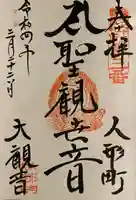 奉拝
人形町
聖観世音
大観音
令和四年
二月二十二日